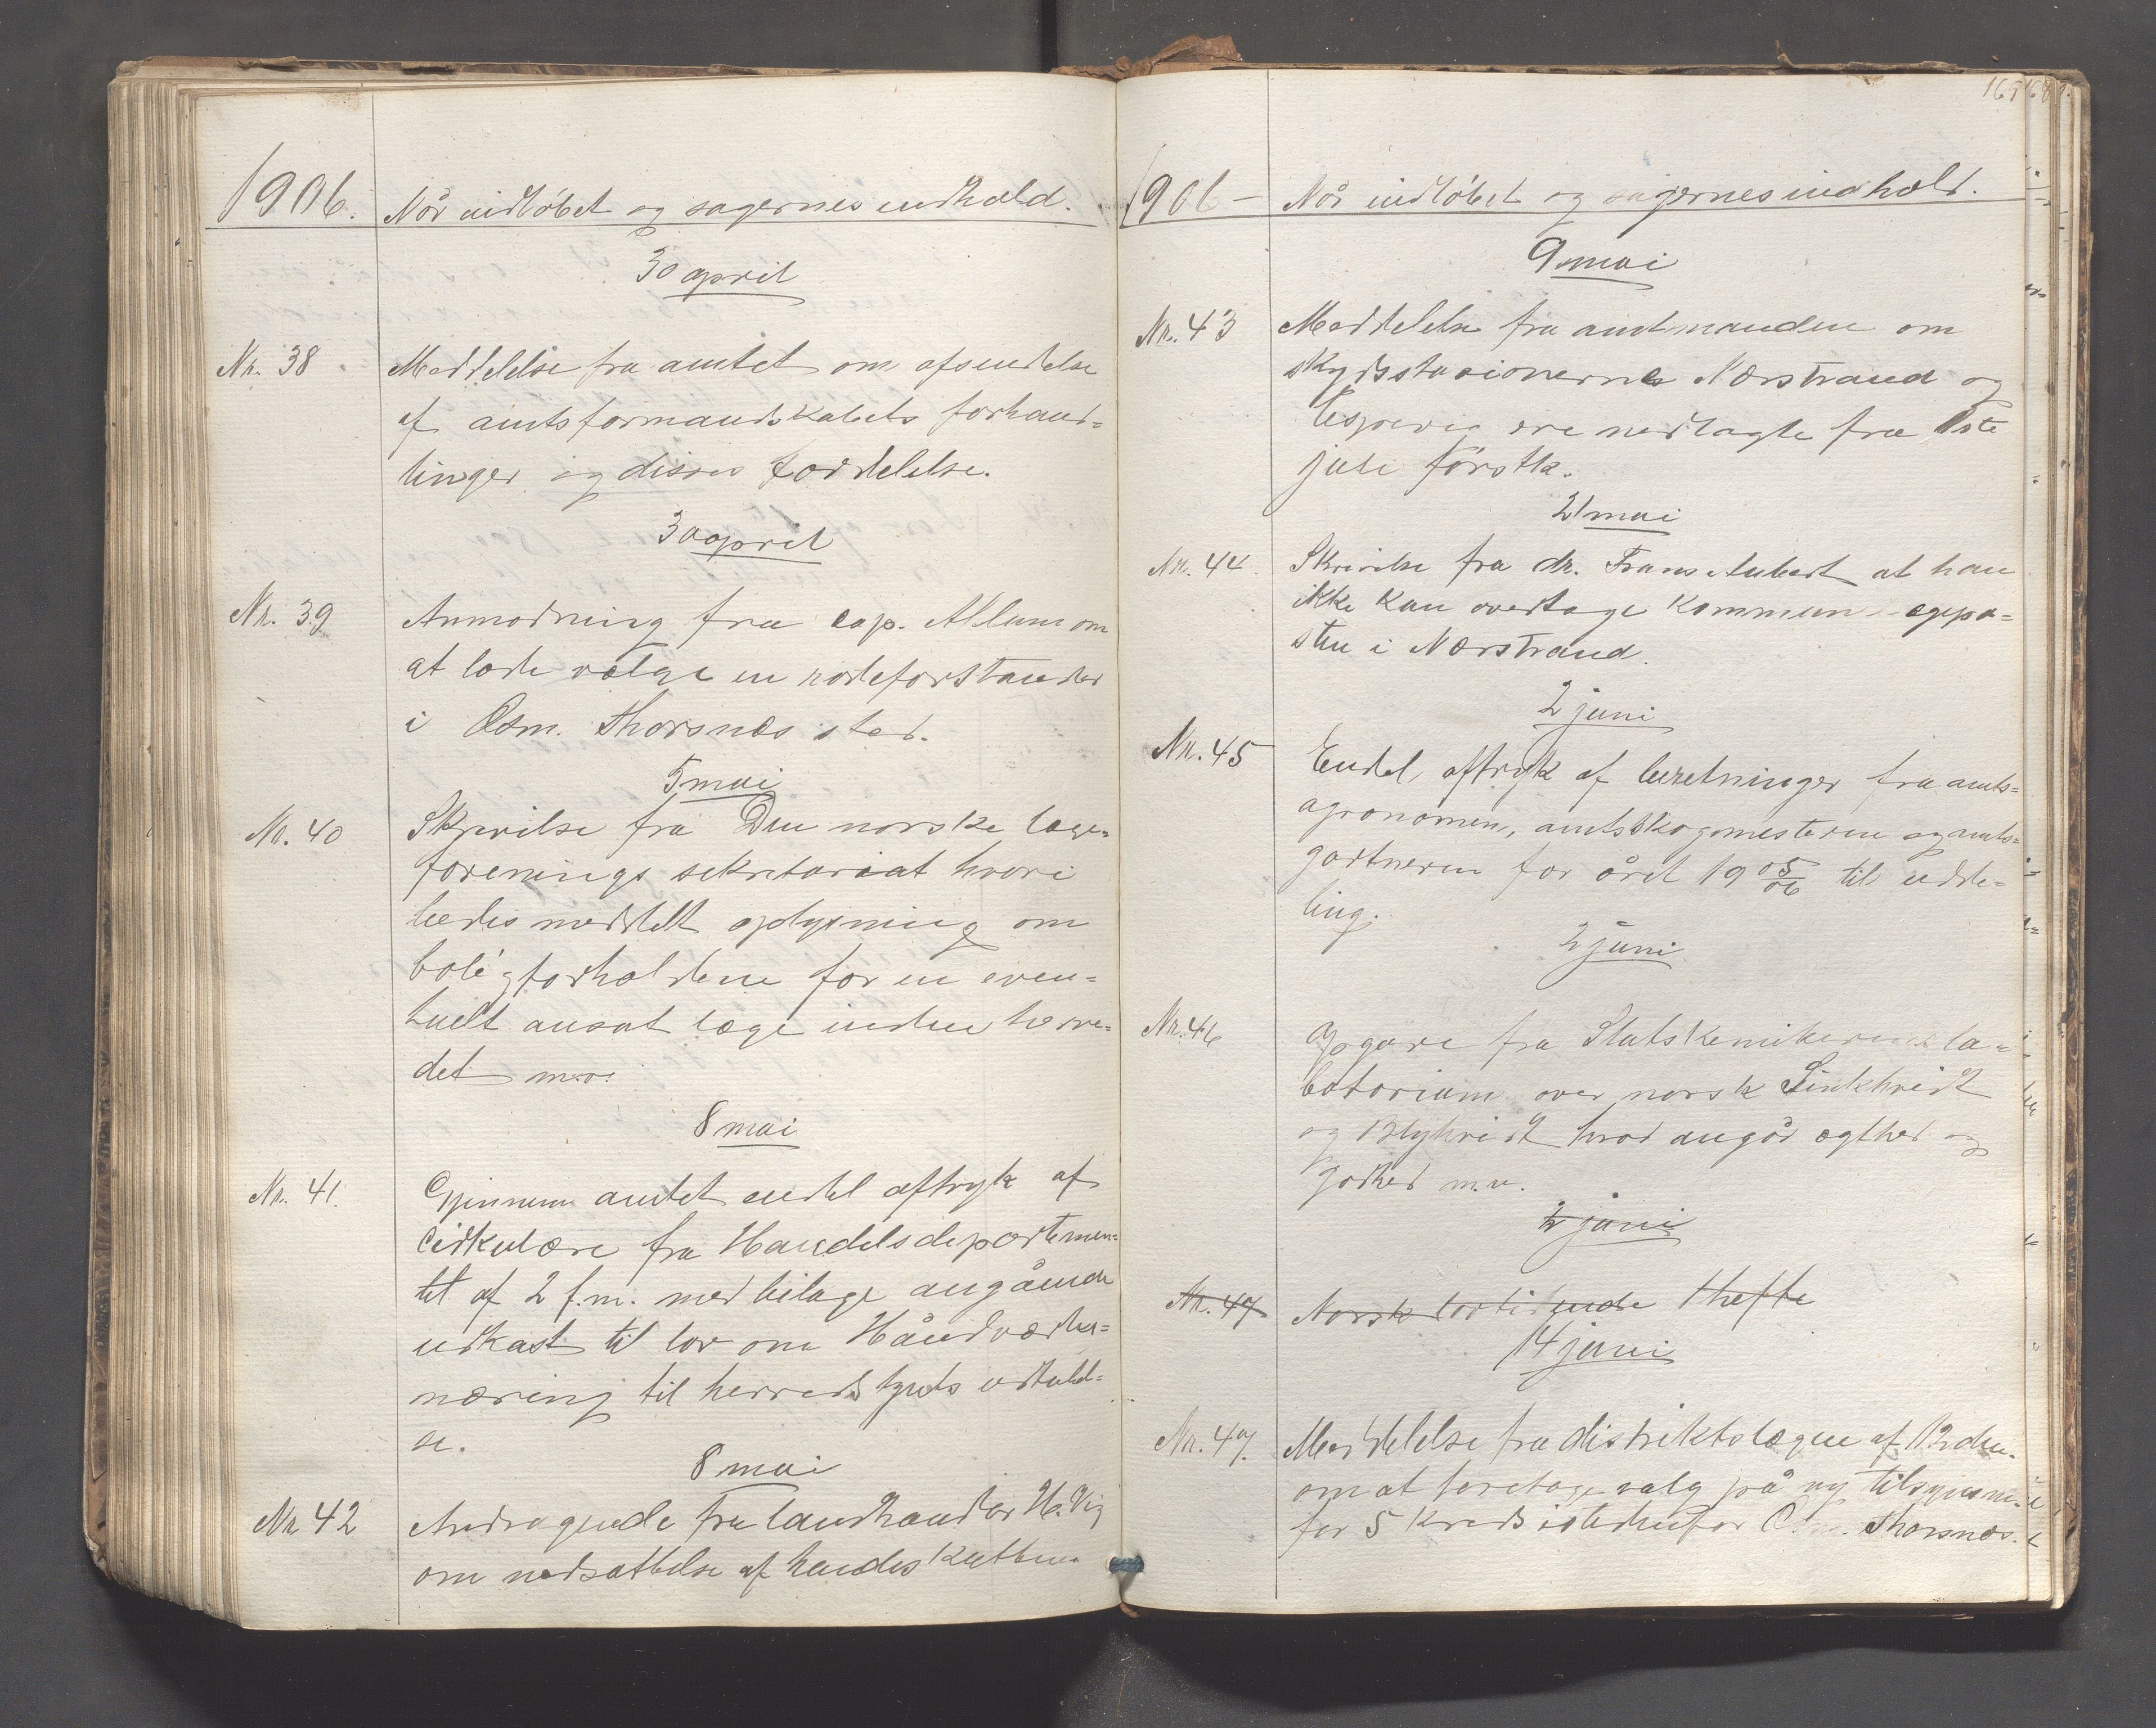 1906. Når indløbet og sagernes indhold.
30 april
Nr. 38 Meddelelse fra amtet om afsendelse
af amtsformandskabets forhand=
linger og disses fordelelse.
30 april
Nr. 39 Anmodning fra cap. Allum om
at lade vælge en rodeforstander
i Osm. Thorsnæs sted.
5 mai
Nr. 40 Skrivelse fra Den norske læge=
forenings sekretariat hvori
bedes meddelt oplysning om
boligforholdene for en even=
tuelt ansat læge inden herre=
det m.v.
8 mai
Nr. 41. Gjennem amtet endel aftryk af
Cirkulære fra Handelsdepartemen=
tet af 2 f.m. med bilage angående
udkast til lov om Håndværker=
næring til herredstyrets udtalel=
se.
8 mai
Nr 42 Andragende fra landhandler H. Vig
om nedsættelse af handelsskatten.
1906 – Når indløbet og sagernes indhold.
9 mai
Nr. 43 Meddelelse fra amtmanden om
skydsstasionerne Nærstrand og
ere nedlagte fra 1ste
juli førstk.
21 mai
Nr. 44 Skrivelse fra dr. Frans Aubert at han
ikke kan overtage kommunelægepo=
sten i Nærstrand.
2 juni
Nr. 45 Endel aftryk af beretninger fra amts=
agronomen, amtsskogmesteren og amts=
gartneren for året 1905/06 til udde=
ling.
2 juni
Nr. 46 Opgave fra Statskemikerens la=
boratorium over norsk Sinkhvidt
og Blyhvidt hvad angår ægthed og
godhed m.v.
2 juni
Nr. 47 Norsk lovtidende 1 hefte
14 juni
Nr. 47. Meddelelse fra distriktslægen af 12 den.
om at foretage valg på ny tilsynsm.
for 5 kreds istedenfor Osm. Thorsnæs.